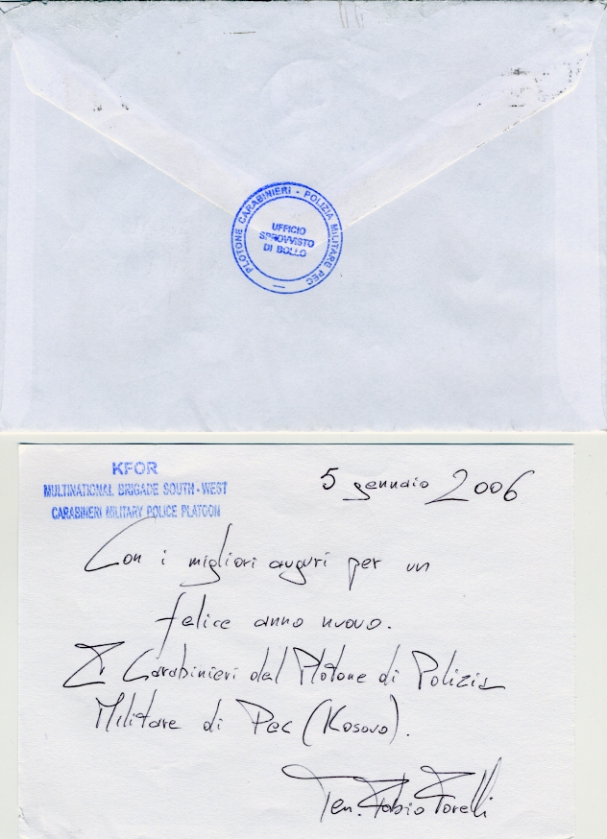 PLOTONE CARABINIERI - POLIZIA MILITARE PEC
UFFICIO
SPROVVISTO
DI BOLLO
KFOR
MULTINATIONAL BRIGADE SOUTH-WEST
CARABINERI MILITARY POLICE PLATOON
5 gennaio 2006
Con i migliori auguri per un
felice anno nuovo.
I Carabinieri del Plotone di Polizia
Militare di Pec (Kosovo).
Ten. Fabio